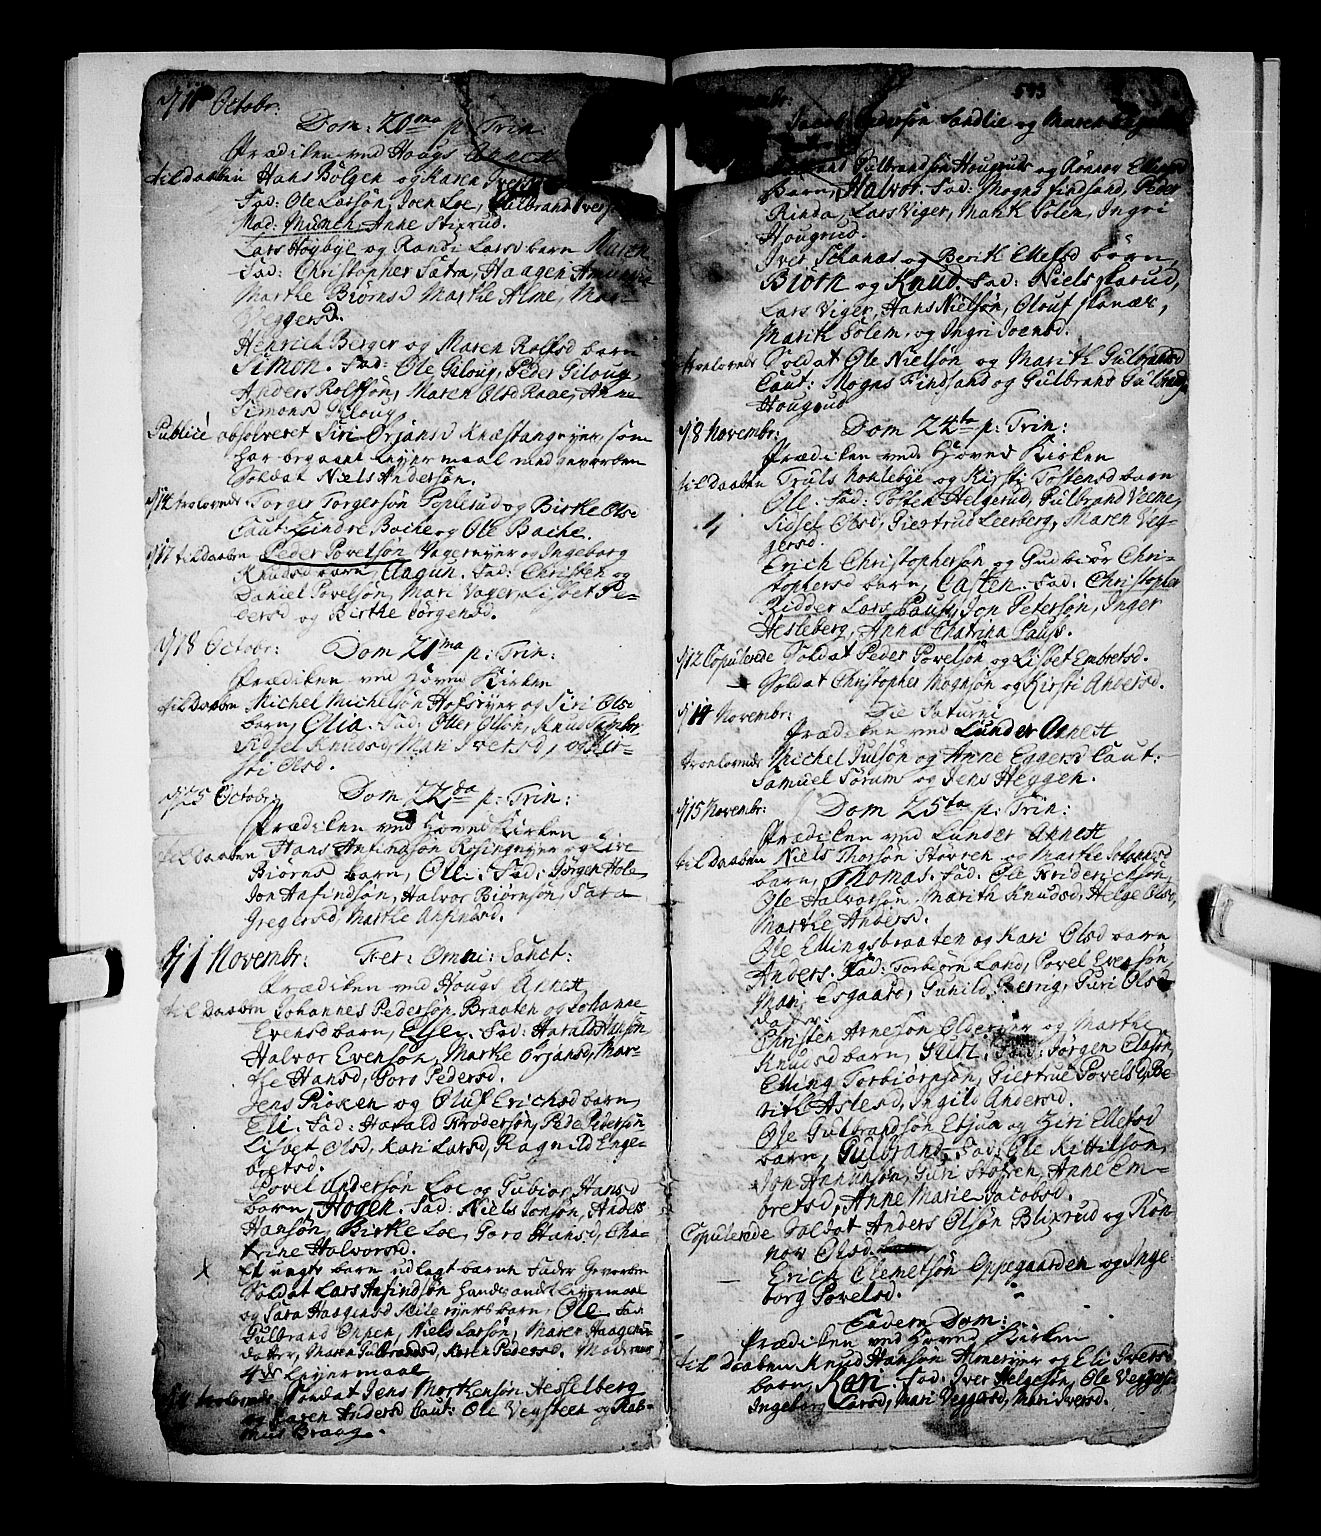 d/11 Octobr:
Dom: 20ma p: Trin
Prædiken ved Haugs Annett
til Daaben Hans Bolgen og Maren
Fad: Ole Larsøn, Joen Loe, Gulbrand Iversøn
Mad: Munch, Anne Stixrud.
Lars Høybye og Randi Larsd barn Maren
Fad: Christopher Satra, Haagen
Marthe Biørnsd Marthe Alme,
Veggersd.
Henrich Berger og Maren Rolfsd barn
Simon. Fad: Ole Giloug, Peder Giloug,
Anders Rolfsøn, Maren Olsd Raae, Anne
Simonsd Giloug.
Publicè absolveret Siri Ørjansd Knæstangeyer, som
har begaaet Leyermaal med geworben
Soldat Niels Andersøn.
d/14 trolovede Torger Torgersøn Poplerud og Birte Olsd
Caut: Sindre Bache og Ole Bache.
d/17 til Daaben Peder Povelsøn Vagereyer og Ingeborg
Knudsd barn, Aagun. Fad: Christen og
Daniel Povelsøn, Mari Vager, Lisbet Pe-
dersd og Birthe Jørgensd.
d/18 Octobr: Dom 21ma p: Trin:
Prædiken ved Hoved Kirken
til Daaben Michel Michelsøn Hofseyer og Siri Olsd
barn, Olia. Fad: Otter Olsøn, Knud
Sidsel Knudsd, Mari Iversd, og Kir-
sti Olsd.
d/25 Octobr: Dom 22da p: Trin:
Prædiken ved Hoved Kirken
til Daaben Hans Anfindsøn Rosingeyer og Live
Biørns barn, Olli. Fad: Jørgen Hole
Jon Anfindsøn, Halvor Biørnsøn, Sara
Gregersd Marthe Anfindsd.
d/1 Novembr: Fer: Omni: Sanct:
Prædiken ved Hougs Annett
til Daaben Johannes Pedersøn Braaten og Johanne
Evensd barn, Else. Fad: Harald Hansøn
Halvor Evensøn, Marthe Ørjansd, Mar-
the Hansd, Goro Pedersd.
Jens Pioken og Oluf Erichsd barn,
Eli. Fad: Harald Brodersøn, Peder Pedersøn
Lisbet Olsd, Kari Larsd, Ragnild Enge-
bretsd.
Povel Andersøn Loe og Gubior Hansd
barn, Hogen. Fad: Niels Jonsøn, Anders
Hansøn, Birthe Loe, Goro Hansd, Cha-
trine Halvorsd.
X Et uægte barn udlagt barne Fader Gevorben
Soldat Lars Anfindsøn handes andet Leyermaal
og Sara Haagensd barn, Ole Fad
Gulbrand Oppen, Niels Larsøn, Maren Haagens
datter, Maria Gulbrandsd, Karen Pedersd. Moderens
Leyermaal
trolovede Soldat Jens Morthensøn Hesselberg
og Karen Andersd Caut: Ole Vensteen og Ras-
mus Braag.
593
Jacob Andersøn Sandlie og Maren
Gulbrandsøn Hougrud og Rønnov Ellevsd
Barn, Halvor. Fad: Mogns Findsand, Peder
Rinda, Lars Viger, Marit Solem, Ingri
Hougrud.
Iver Schanas og Berit Ellefsd børn,
Biørn og Knud. Fad: Niels Skarud,
Lars Viger, Hans Nielsøn, Oluf Skanæs,
Marith Solem, og Ingri Joensd.
troelovede Soldat Ole Nielsøn og Marith Gulbransd
Caut: Mogns Findsand og Gulbrand Gulbrandsøn
Hougrud
d/8 Novembr: Dom 24ta p: Trin:
Prædiken ved Hoved Kirken
til Daaben Truls Nokleby og Kirsti Tostensd barn
Ole. Fad: Tosten Helgerud, Gulbrand Veme,
Sidsel Olsd, Giertrud Leerberg, Maren Veg-
gersd.
Erich Christophersøn og Gudbiør Chri-
stophersd barn, Casten. Fad: Christopher
Ridder Lars Paus, Jon Petersøn, Inger
Hesleberg, Anna Chatrina Pauss.
d/12 Copulerede Soldat Peder Povelsøn og Lisbet Embretsd.
— Soldat Christopher Mognsøn og Kirsti Andersd.
d/14 Novembr: Die Saturni
Prædiken ved Lunder Annett
troolovede Michel Julsøn og Anne Eggersd Caut:
Samuel Sørum og Jens Heggen.
d/15 Novembr: Dom 25ta p: Trin:
Prædiken ved Lunder Annett
til Daaben Niels Thorsøn Støvren og Marthe
barn, Thomas. Fad: Ole Friderichsøn,
Ole Halvorsøn, Marith Knudsd, Helge Olsd,
Marthe Andersd.
Ole Ellingsbraaten og Kari Olsd barn
Anders. Fad: Torbiørn Land, Povel Evensøn,
Mari Esgaard, Gunild Guri Ols
datter.
Christen Arnesøn og Marthe
Knudsd barn, Fad: Jørgen Clasøn,
Elling Torbiørnsøn, Giertrue Povelsd, Be-
rith Aslesd, Ingild Andersd.
Ole Gulbrandsøn Elsrud og Ziri Ellefsd
barn, Gulbrand. Fad: Ole Kittilsøn,
Jon Hanunsøn, Guri Støveren, Anne Em-
bretsd, Anne Marie Jacobsd.
Copulerede Soldat Anders Olsøn Blixrud og Røn-
nov Olsd.
— Erich Clemetsøn Oppegaarden og Inge-
borg Povelsd.
Eadem Dom:
Prædiken ved Hoved Kirken
til Daaben Knud Hansøn Almereyer og Eli Iversd
barn, Kari. Fad: Iver Helgesøn, Ole Veggersøn
Ingeborg Larsd, Mari Veggersd, Mari Iversd.